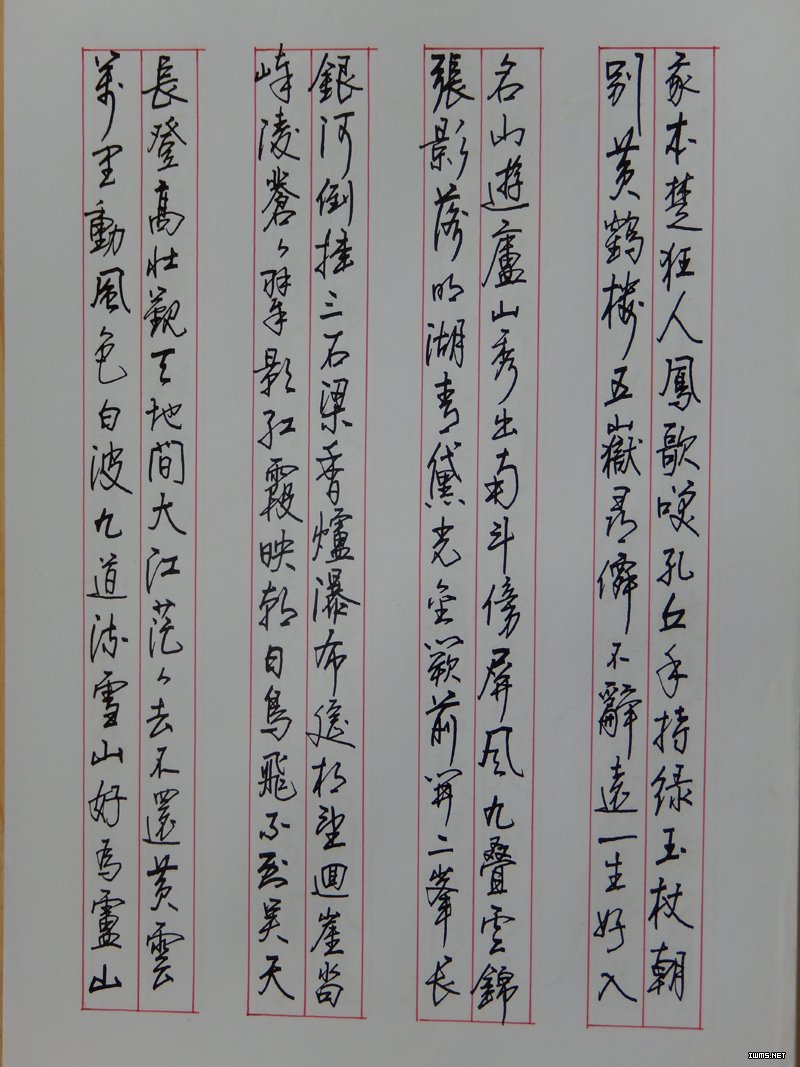 我本楚狂人鳳歌咲孔丘手持绿玉杖朝
别黄鶴楼五嶽尋僊不辭遠一生好入
名山遊廬山秀出南斗傍屏風九疊雲錦
張影落明湖青黛光金闕前開二峯長
銀河倒挂三石梁香爐瀑布遥相望迴崖沓
嶂凌蒼々翠影紅霞映朝日鳥飛不到吴天
長登高壯觀天地間大江茫々去不還黄雲
萬里動風色白波九道流雪山好為廬山
IWMS.NET